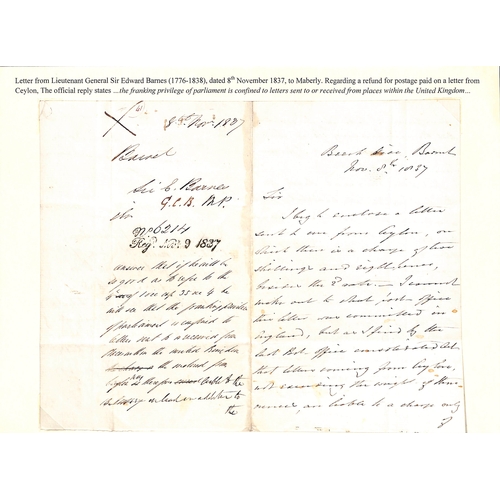 Letter from Lieutenant General Sir Edward Barnes (1776-1838), dated 8th November 1837, to Maberly. Regarding a refund for postage paid on a letter from
Ceylon, The official reply states ...the franking privilege of parliament is confined to letters sent to or received from places within the United Kingdom...
8th Nov. 1837
Barnet
Sir E. Barnes
G.C.B. M.P.
No 6214
Reg. Nov. 9 1837
answer that if he will be
so good as to refer to the
he
will see that the franking privilege
of parliament is confined to
letters sent to or received from
places within the United Kingdom
the
to the
the
Barnet
Nov. 8th 1837
Sir
I beg to enclose a letter
sent to me from Ceylon, on
which there is a charge of two
shillings and eight pence,
besides the I cannot
make out to what post office
this letter was committed in
England, but as I find by the
last Post office consolidated Act
that letters coming from Ceylon
not exceeding the weight of three
ounces, are liable to a charge only
of